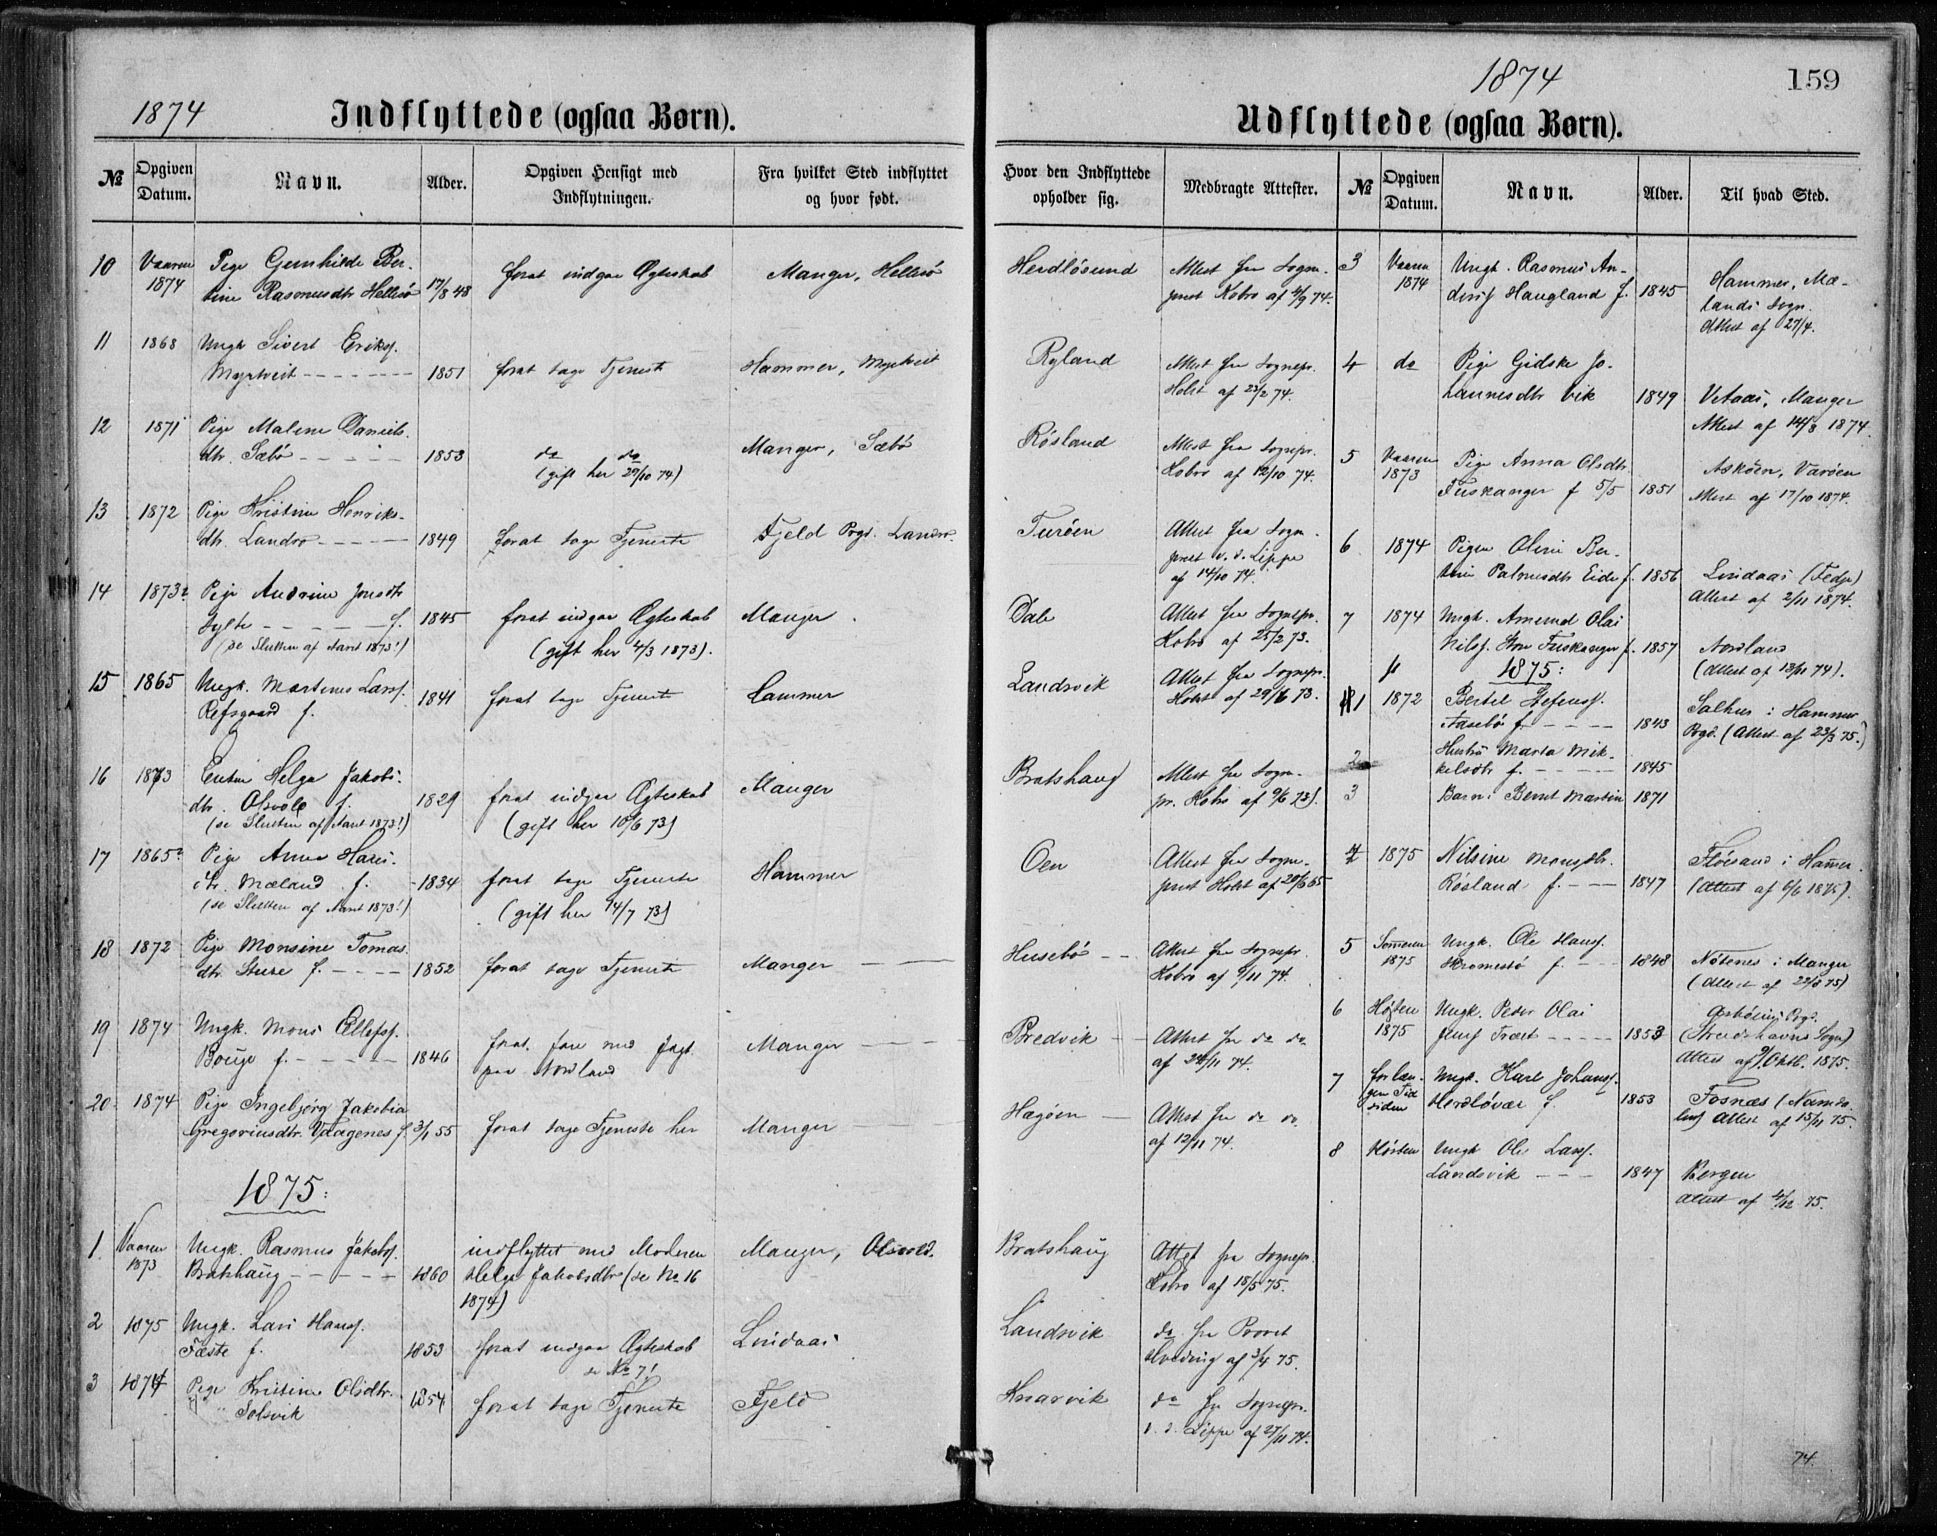 1874
Indflyttede (ogsaa Børn).
№
Opgiven Datum.
Navn.
Alder.
Opgiven Hensigt med Indflytningen.
Fra hvilket Sted indflyttet og hvor født.
10 Vaaren Pige Gjernhilde Ber-
1874 tine Rasmusdtr Hellesø 17/8 48 forat indgaa Ægteskab Manger, Hellesø
11 1868 Ungk Sivert Eriks.
Myrtveit 1851 forat tage Tjeneste Hammer, Myrtveit
12 1871 Pige Malene Daniels.
dtr. Sæbø 1853 do do Manger, Sæbø
(gift her 29/10 74)
13 1872 Pige Kristine Henriks-
dtr. Landro 1849 forat tage Tjeneste Fjeld Pgd. Landro
14 1873? Pige Andrine Jonsdtr
Sylte f. 1845 forat indgaa Ægteskab Manger
(se Slutten af Aaret 1873!) (gift her 4/3 1873).
15 1865 Ungk. Martinus Lars.
Refsgaard f. 1841 forat tage Tjeneste Hammer
16 1873 Enken Helga Jakobs.
dtr. Olsvold f. 1829 forat indgaa Ægteskab Manger
(se Slutten af Aaret 1873!) (gift her 10/6 73)
17 1865? Pige Anna Hans.
dtr. Mæland f. 1834 forat tage Tjeneste Hammer
(se Slutten af Aaret 1873!) (gift her 14/7 73)
18 1872 Pige Monsine Tomas
dtr. Sture f. 1852 forat tage Tjeneste Manger
19 1874 Ungk. Mons Ellefs.
Bouge f. 1846 forat fare med Jagt Manger
paa Nordland
20 1874 Pige Ingebjørg Jakobia
Gregoriusdtr. Vaagenes f. 3/1 55 forat tage Tjeneste her Manger
1875:
1 Vaaren Ungk. Rasmus Jakobs. indflyttet med Moderen Manger, Olsvold.
1873 Bratshaug 1860 Helge Jakobsdtr (se No 16
1874)
2 1875 Ungk. Lars Hans.
Fæste f. 1853 forat indgaa Ægteskab Lindaas
se No 7!
3 1874 Pige Kristine Olsdtr. 1854 forat tage Tjeneste Fjeld
Solsvik
1874
159
Udflyttede (ogsaa Børn).
Hvor den Indflyttede opholder sig.
Medbragte Attester.
№
Opgiven Datum.
Navn.
Alder.
Til hvad Sted.
Herdløsund Attest fra Sogn. 3 Vaaren Ungk. Rasmus An-
prest Kobro af 4/9 74. 1874 ders. Haugland f. 1845 Hammer, Mæ-
lands Sogn.
Attest af 27/4.
Ryland Attest fra Sognepr. 4 do Pige Gidske Jo-
Holst af 23/2 74. hannesdtr Vik 1849 Vetaas, Manger
Attest af 14/8 1874.
Røsland Attest fra Sognepr. 5 Vaaren Pige Anna Olsdtr. Askøen, Varøen
Kobro af 12/10 74. 1873 Tuskanger f 5/5 1851 Attest af 17/10 1874.
Turøen Attest fra Sogn. 6 1874 Pigen Oline Ber-
prest v. d. Lippe tine Palmesdtr Eide f. 1856 Lindaas (Fedje)
af 14/10 74. Attest af 2/11 1874.
Dale Attest fra Sognepr. 7 1874 Ungk. Amund Olai
Kobro af 25/2 73. Nils. Store Tuskanger f. 1857 Nordland
(Attest af 13/11 74).
1875:
Landsvik Attest fra Sognepr.
Holst af 29/6 73. 1 1872 Bertel Stefens.
Aasebø f. 1843 Salhus i Hammer
Pgd. (Attest af 23/3 75.)
2 Hustru Marta Mik-
kelsdtr f. 1845
Bratshaug Attest fra Sogn-
pr. Kobro af 9/6 73). 3 Barn: Bernt Martin 1871
Oen Attest fra Sogne- 4 1875 Nilsine Monsdtr. Fløisand i Hamer
prest Holst af 20/3 65 Røsland f. 1847 (Attest af 6/6 1875).
Husebø Attest fra Sognepr. 5 Someren Ungk. Ole Hans.
Kobro af 9/11 74. 1875 Kromestø f. 1848 Nøtenes i Manger
(Attest af 22/8 75)
6 Høsten Ungk. Peder Olai Askøens Pgd.
1875 Jens. Træet 1853 (Strudshavns Sogn)
Attest af 9/ Oktb. 1875.
Bredvik Attest fra do do
af 24/11 74.
7 for læn- Ungk. Karl Johans.
gere Tid
siden Herdløvær f. 1853 Fosnæs (Namda
len) Attest af 15/11 75.
Hagøen Attest fra do do
af 12/11 74.
8 Høsten Ungk Ole Lars.
Landsvik 1847 Bergen
Attest af 4/12 75.
Bratshaug Attest fra Sognepr.
Kobro af 15/5 75.
Landsvik do fra Provst
Hvoding af 3/4 75.
Knarvik do fra Sognepr.
v. d. Lippe af 27/11 74.
74.